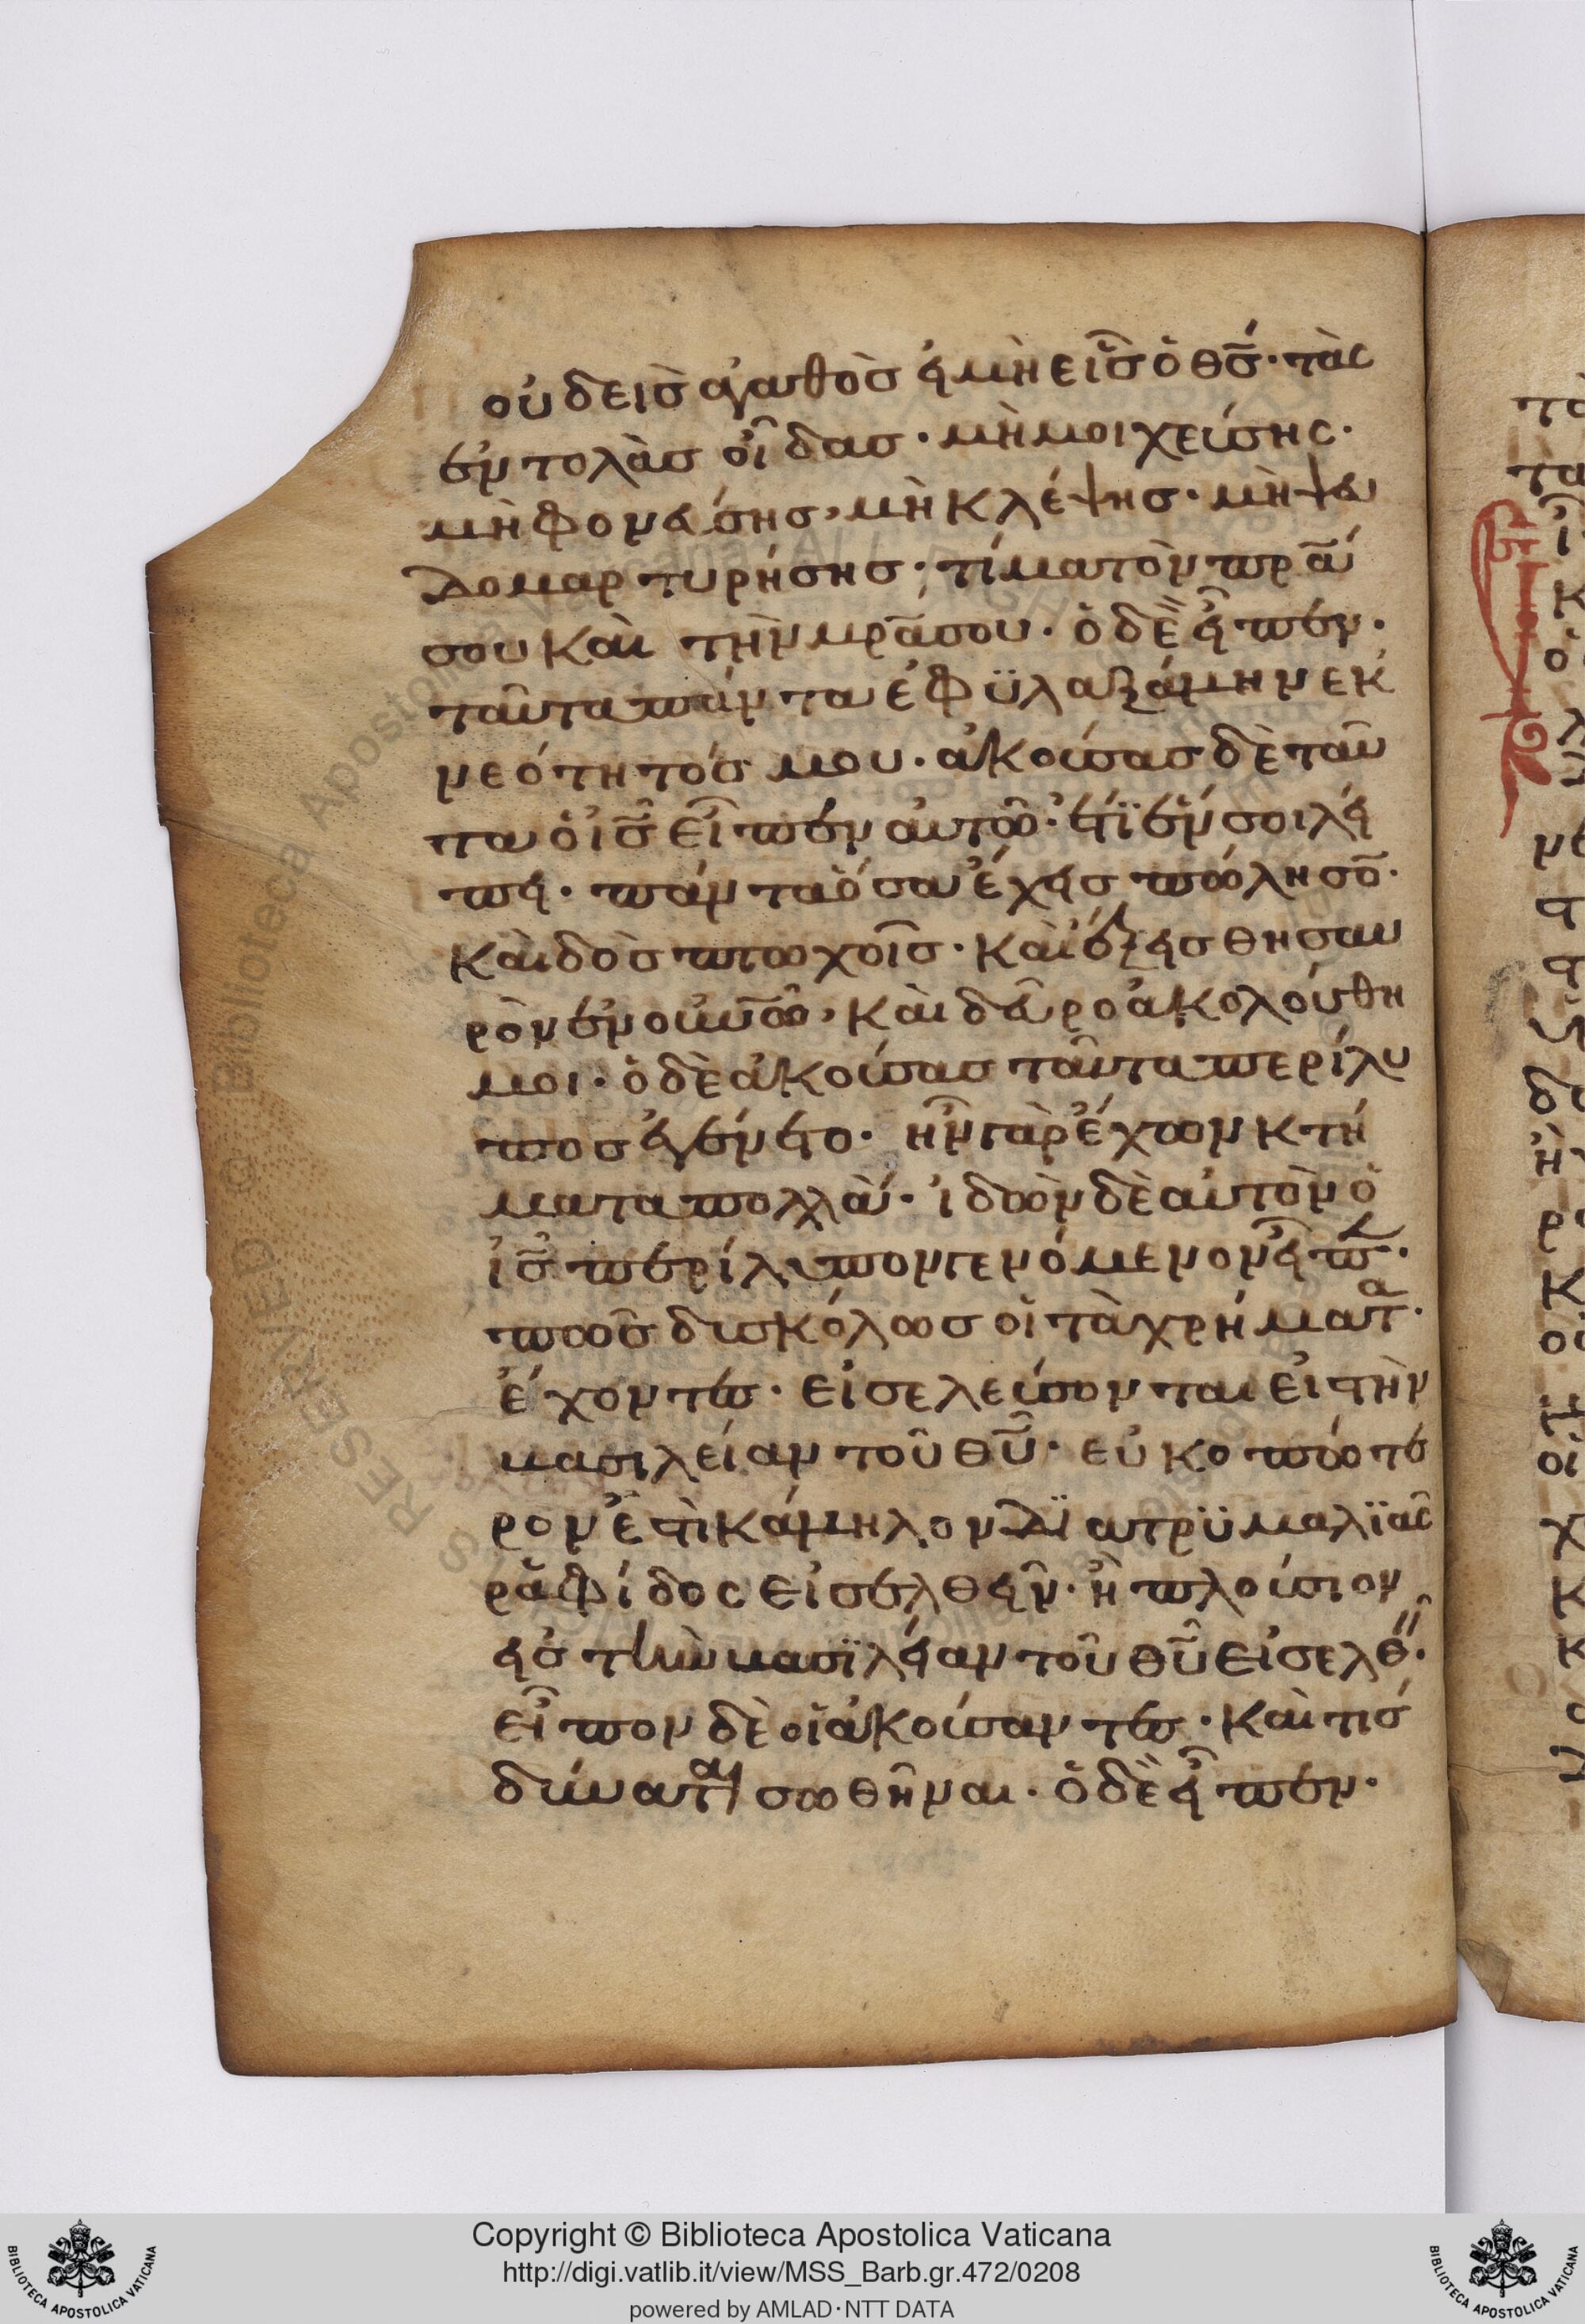 οὐδεὶς ἀγαθὸς εἰ μὴ εἷς ὁ θς̅· τὰς
ἐντολὰς οἶδας· μὴ μοιχεύσης·
μὴ φονεύσης, μὴ κλέψης· μὴ ψευ
δομαρτυρήσης· τίμα τὸν πρ̅α
σου καὶ τὴν μρ̅α σου· ὁ δὲ εἶπεν·
ταῦτα πάντα ἐφϋλαξάμην ἐκ
νεότητός μου· ἀκούσας δὲ ταῦ
τα ὁ ις̅ εἶπεν αὐτῶ· ἔτϊ ἕν σοι λεί
πει· πάντα ὅσα ἔχεις πώλησο̅·
καὶ δὸς πτωχοῖς· καὶ ἕξεις θησαυ
ρὸν ἐν οὐνω̅, καὶ δεῦρο ἀκολούθη
μοι· ὁ δὲ ἀκούσας ταῦτα περίλυ
πος ἐγένετο· ἦν γὰρ ἔχων κτή
ματα πολλὰ· ἰδὼν δὲ αὐτὸν ὁ
ις̅ περίλυπον γενόμενον εἶπ·
πῶς δυσκόλως οἱ τὰ χρήματα·
ἔχοντες· εἰσελεύσονται εἰ τὴν
βασιλείαν τοῦ θυ̅· εὐκοπώτε
ρον ἐτὶ κάμηλον δϊα τρϋμαλϊᾶς
ῥαφίδος εἰσελθεῖν· ἢ πλούσιον
εἰς τὴν βασϊλείαν τοῦ θυ̅ εἰσελθ·
εἶπον δὲ οἱ ἀκούσαντες· καὶ τίς
δύναται σωθῆναι· ὁ δὲ εἶπεν·
Copyright © Biblioteca Apostolica Vaticana
http://digi.vatlib.it/view/MSS_Barb.gr.472/0208
powered by AMLAD·NTT DATA
BIBLIOTECA APOSTOLICA VATICANA
BIBLIOTECA APOSTOLICA VATICANA